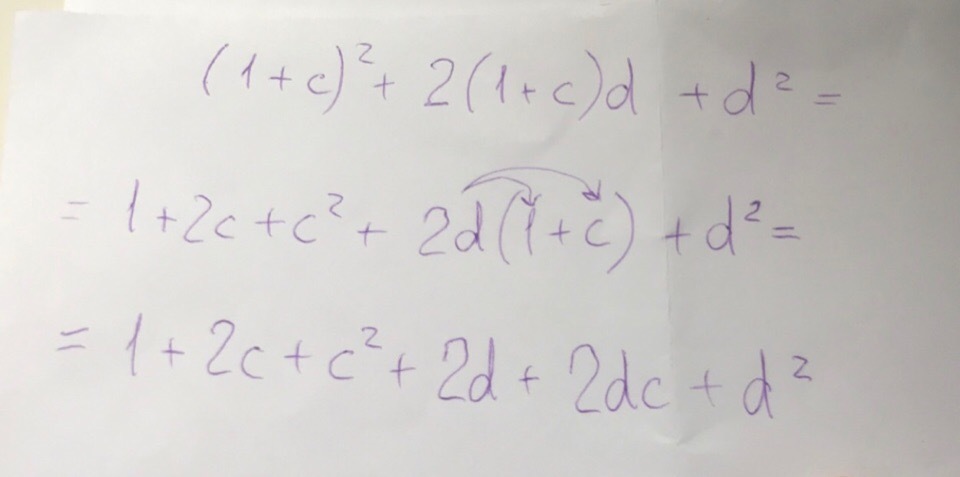 (1+c)²+ 2(1+c)d +d²=
= 1+2c+c²+ 2d(1+c) +d²=
= 1+2c+c²+2d+2dc+d²